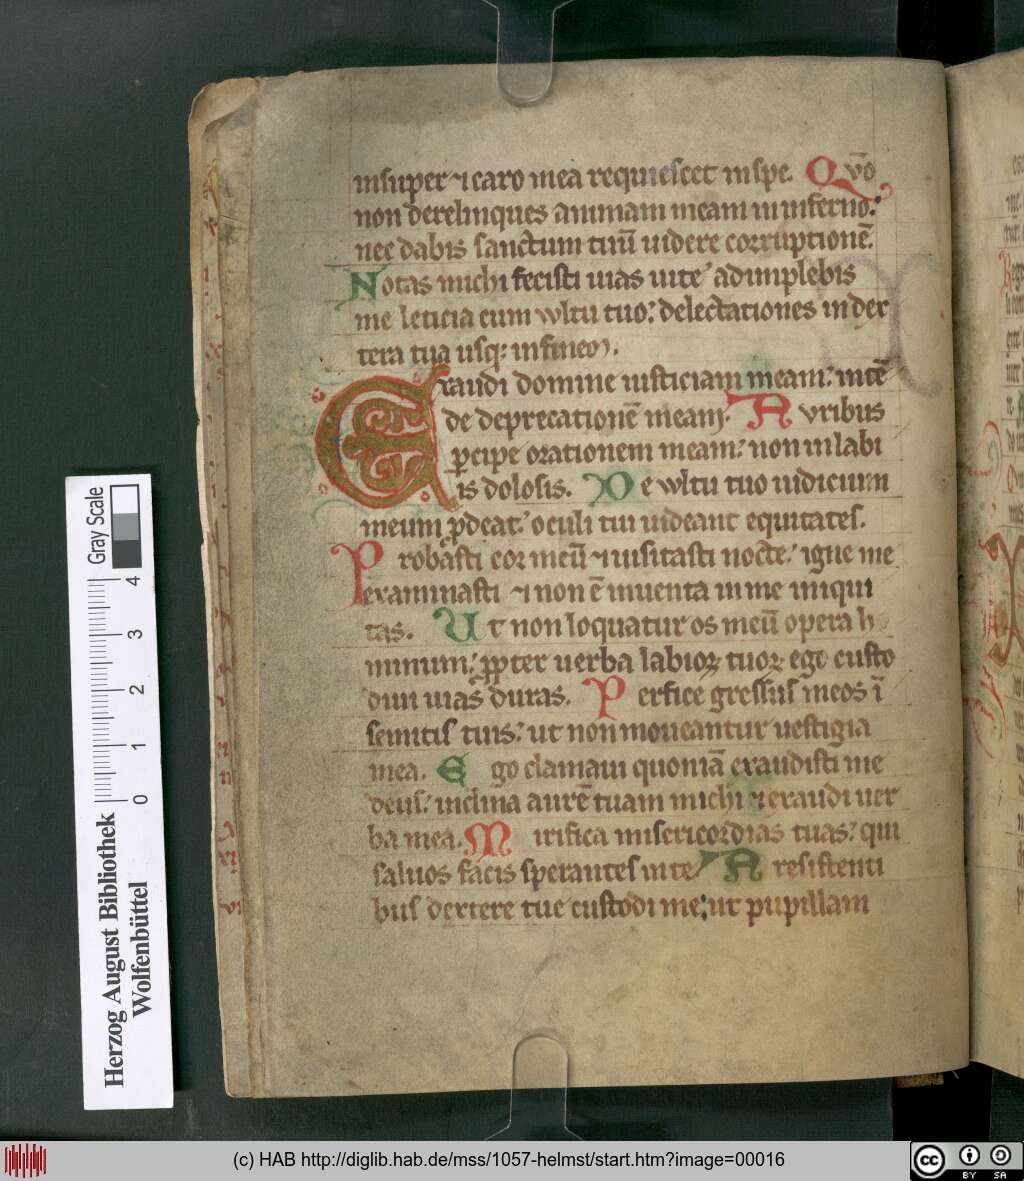 insuper ⁊ caro mea requiescet in spe. Qvō
non derelinques animam meam in inferno:
nec dabis sanctum tuū uidere corruptionē.
Notas michi fecisti uias uite adimplebis
me leticia cum wltu tuo: delectationes in dex
tera tua usq; in finem.
Exaudi domine iusticiam meam: intē
de deprecationē meam. Avribus
ꝑcipe orationem meam: non in labi
is dolosis. De wltu tuo iudicium
meum ꝓdeat: oculi tui uideant equitates.
Probasti cor meū ⁊ uisitasti nocte: igne me
examinasti ⁊ non ē inuenta in me iniqui
tas. Ut non loquatur os meū opera ho
minum: ꝓpter uerba labioꝝ tuoꝝ ego custo
diui uias duras. Perfice gressus meos ī
semitis tuis: ut non moueantur uestigia
mea. Ego clamaui quoniā exaudisti me
deus: inclina aurē tuam michi ⁊ exaudi uer
ba mea. Mirifica misericordias tuas: qui
saluos facis sperantes in te. A resistenti
bus dextere tue custodi me: ut pupillam
Gray Scale
4
3
2
1
0
Herzog August Bibliothek
Wolfenbüttel
(c) HAB http://diglib.hab.de/mss/1057-helmst/start.htm?image=00016
cc
BY SA